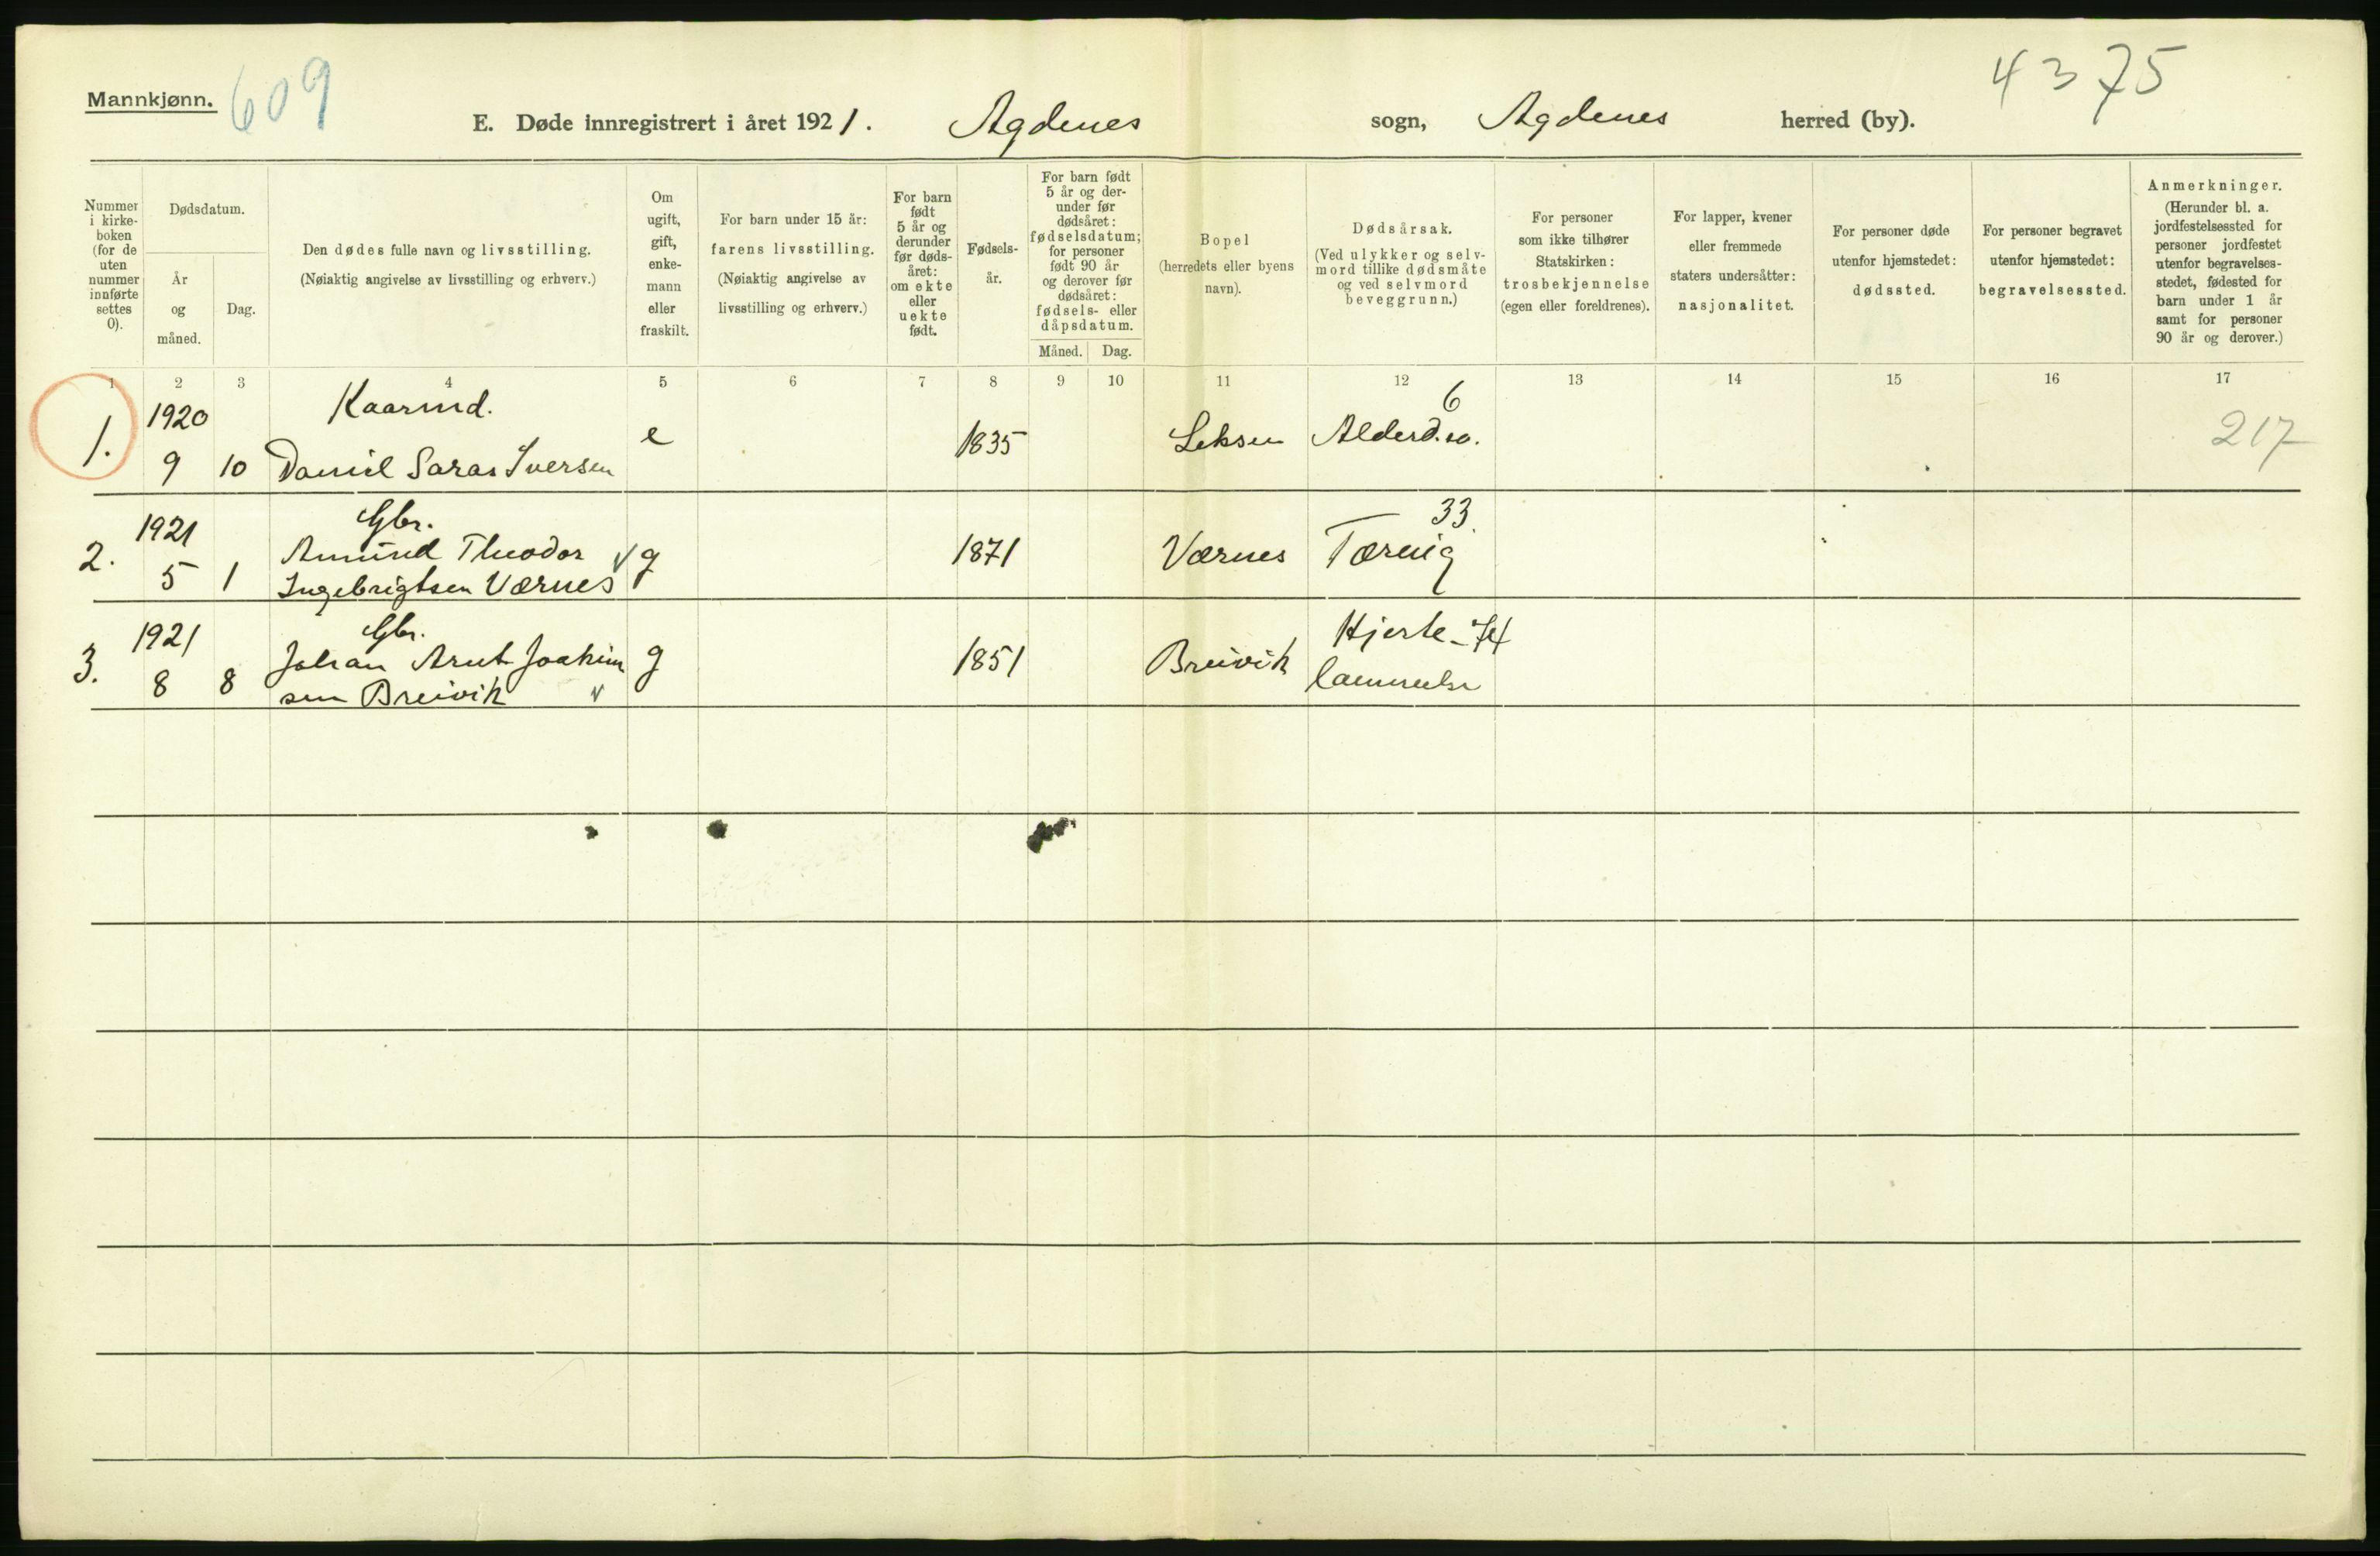 Mannkjønn.
609
4375
E. Døde innregistrert i året 1921. Agdenes sogn, Agdenes herred (by).
Nummer i kirke-boken (for de uten nummer innførte settes 0).
Dødsdatum.
År og måned.
Dag.
Den dødes fulle navn og livsstilling.
(Nøiaktig angivelse av livsstilling og erhverv.)
Om ugift, gift, enke-mann eller fraskilt.
For barn under 15 år:
farens livsstilling.
(Nøiaktig angivelse av livsstilling og erhverv.)
For barn født 5 år og derunder før døds-året: om ekte eller uekte født.
Fødsels-år.
For barn født 5 år og der-under før dødsåret: fødselsdatum; for personer født 90 år og derover før dødsåret: fødsels- eller dåpsdatum.
Måned. Dag.
Bopel
(herredets eller byens navn).
Dødsårsak.
(Ved ulykker og selv-mord tillike dødsmåte og ved selvmord beveggrunn.)
For personer som ikke tilhører Statskirken: trosbekjennelse (egen eller foreldrenes).
For lapper, kvener eller fremmede staters undersåtter: nasjonalitet.
For personer døde utenfor hjemstedet: dødssted.
For personer begravet utenfor hjemstedet: begravelsessted.
Anmerkninger.
(Herunder bl. a. jordfestelsessted for personer jordfestet utenfor begravelses-stedet, fødested for barn under 1 år samt for personer 90 år og derover.)
1 2 3 4 5 6 7 8 9 10 11 12 13 14 15 16 17
1920 Kaarmd. 6
1. 9 10 Daniel Saras Iversen e 1835 Leksen Alderd.so. 217
1921 Gbr. 33.
2. 5 1 Amund Theodor g 1871 Værnes Tæring
Ingebrigtsen Værnes
1921 Gbr. Hjerte- 74
3. 8 8 Johan Arnt Joakim g 1851 Breivik lammelse
sen Breivik